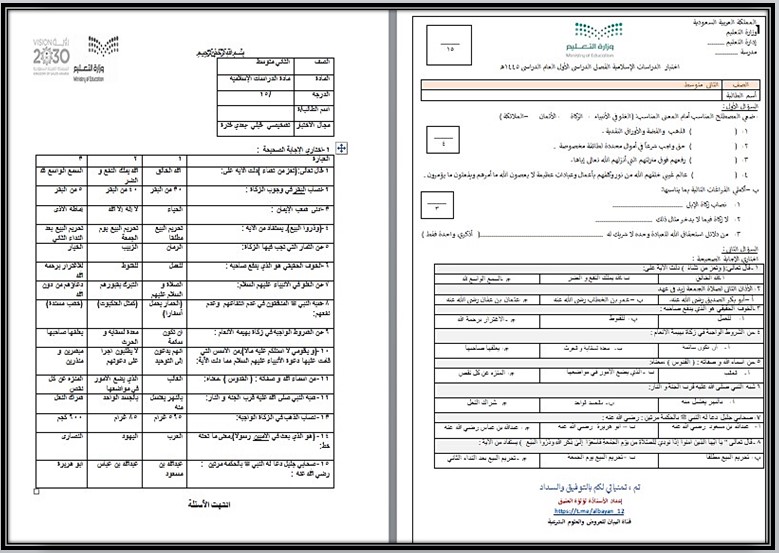 المملكة العربية السعودية
وزارة التعليم
إدارة التعليم
مدرسة
وزارة التعليم
Ministry of Education
١٥
اختبار الدراسات الإسلامية الفصل الدراسي الأول العام الدراسي ١٤٤٥هـ
الصف الثاني متوسط
اسم الطالبة
السؤال الأول:
ضعي المصطلح المناسب أمام المعنى المناسب: (الغلو في الأنبياء - الزكاة - الأثمان - الملائكة)
١- ( ) الذهب والفضة والأوراق النقدية.
٢- ( ) حق واجب شرعاً في أموال محددة لطائفة مخصوصة.
٣- ( ) رفعهم فوق منزلتهم التي أنزلهم الله تعالى إياها.
٤- ( ) عالم غيبي خلقهم الله من نور وكلفهم بأعمال وعبادات عظيمة لا يعصون الله ما أمرهم ويفعلون ما يؤمرون.
٤
ب- أكملي الفراغات التالية بما يناسبها:
١- نصاب زكاة الإبل
٢- لا زكاة فيما لا يدخر مثال ذلك
٣- من دلائل استحقاق الله للعبادة وحده لا شريك له (أذكري واحدة فقط)
٣
السؤال الثاني:
اختاري الإجابة الصحيحة:
١- قال تعالى: (وتعز من تشاء) دلت الآية على:
أ- الله الخالق ب- الله يملك النفع و الضر ج- السمع الواسع لله
٢- الأذان الثاني لصلاة الجمعة زيد في عهد
أ- أبو بكر الصديق رضي الله عنه ب- عمر بن الخطاب رضي الله عنه ج- عثمان بن عفان رضي الله عنه
٣- الخوف الحقيقي هو الذي يدفع صاحبه:
أ- للعمل ب- للقنوط ج- الاغترار برحمة الله
٤- من الشروط الواجبة في زكاة بهيمة الأنعام:
أ- أن تكون سائمة ب- معدة لسقاية و الحرث ج- يعلفها صاحبها
٥- من أسماء الله و صفاته: (القدوس) معناه:
أ- الغالب ب- الذي يضع الأمور في مواضعها ج- المنزه عن كل نقص
٦- شبه النبي صلى الله عليه قرب الجنة و النار:
ب- بالجسد الواحد ج- شراك النعل
٧- صحابي جليل دعا له النبي ﷺ بالحكمة مرتين: رضي الله عنه:
أ- عبدالله بن مسعود رضي الله عنه ب- أبو هريرة رضي الله عنه ج- عبدالله بن عباس رضي الله عنه
٨- قال تعالى "يا أيها الذين آمنوا إذا نودي للصلاة من يوم الجمعة فاسعوا إلى ذكر الله وذروا البيع" يستفاد من الآية:
تحريم البيع مطلقا ب- تحريم البيع يوم الجمعة ج- تحريم البيع بعد النداء الثاني
تم، تمنياتي لكم بالتوفيق والسداد
https://t.me/albayan_12
قناة البيان للعروض والعلوم الشرعية
بسم الله الرحمن الرحيم
VISION رؤية
2030
وزارة التعليم
Ministry of Education
الصف الثاني متوسط
المادة مادة الدراسات الإسلامية
الدرجة /١٥
اسم الطالب/ة
مجال الاختبار تشخيصي قبلي بعدي فترة
١- اختاري الإجابة الصحيحة:
العبارة ١ ٢ ٣
١- قال تعالى: (تعز من تشاء) دلت الآية على: الله الخالق الله يملك النفع و الضر السمع الواسع لله
٢- نصاب البقر في وجوب الزكاة: ٣٠ من البقر ٤٠ من البقر ٥ من البقر
٣- أدنى شعب الإيمان: الحياء لا إله إلا الله إماطة الأذى
٤- (وذروا البيع)، يستفاد من الآية: تحريم البيع مطلقا تحريم البيع يوم الجمعة تحريم البيع بعد النداء الثاني
٥- من الثمار التي تجب فيها الزكاة: الرمان الزبيب الخيار
٦- الخوف الحقيقي هو الذي يدفع صاحبه: للعمل للقنوط للاغترار برحمة الله
٧- من الغلو في الأنبياء عليهم السلام: الصلاة و السلام عليهم التبرك بقبورهم دعاؤهم من دون الله
٨- شبه النبي ﷺ المنافقون في عدم انتفاعهم وعدم نفعهم: (الحمار يحمل أسفارا) (كمثل العنكبوت) (خشب مسندة)
٩- من الشروط الواجبة في زكاة بهيمة الأنعام: أن تكون سائمة معدة لسقاية و الحرث يعلفها صاحبها
١٠- (و يقومي لا أسئلكم عليه مالا)، من الأسس التي قامت عليها دعوة الأنبياء عليهم السلام مما دلت الآية: أنهم يدعون إلى التوحيد لا يطلبون أجرا على دعوتهم مبشرين و منذرين
١١- من أسماء الله و صفاته: (القدوس)، معناه: الغالب الذي يضع الأمور في مواضعها المنزه عن كل نقص
١٢- شبه النبي صلى الله عليه قرب الجنة و النار: بالنهر يغتسل منه بالجسد الواحد شراك النعل
١٣- نصاب الذهب في الزكاة الواجبة: ٥٩٥ غرام ٨٥ غرام ٦٠٠ كجم
١٤- (هو الذي بعث في الأميين رسولا)، معنى ما تحته خط: العرب اليهود النصارى
١٥- صحابي جليل دعا له النبي ﷺ بالحكمة مرتين: رضي الله عنه: عبدالله بن مسعود عبدالله بن عباس أبو هريرة
انتهت الأسئلة